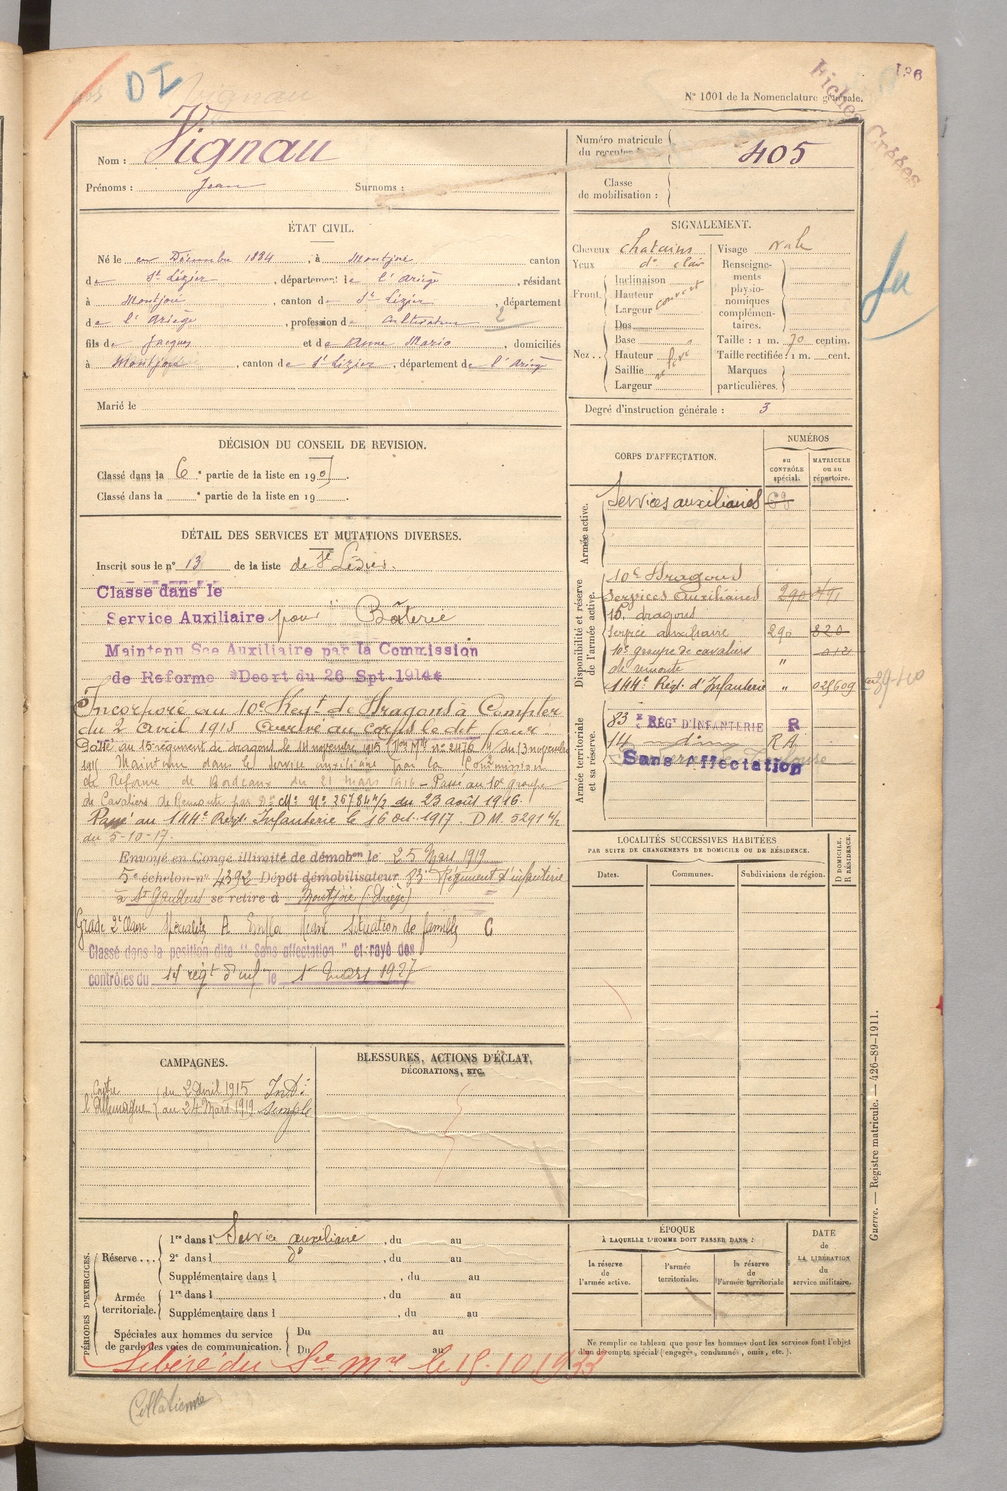 DI
186
Fiches Créées
N° 1001 de la Nomenclature générale.
Nom : Vignau
Prénoms : Jean Surnoms :
Numéro matricule du recrutement 405
Classe de mobilisation :
ÉTAT CIVIL.
Né le Décembre 1884, à Montjoie canton
de St Lizier, département de l'Ariège, résidant
à Montjoie, canton de St Lizier, département
de l'Ariège, profession de cultivateur 2
fils de Jacques et de Anne Marie, domiciliés
à Montjoie, canton de St Lizier, département de l'Ariège
Marié le
SIGNALEMENT.
Cheveux chatains Visage ovale
Yeux d° clair
Front Inclinaison
Hauteur couvert
Largeur
Nez Dos
Base
Hauteur
Saillie
Largeur
Renseignements physionomiques complémentaires.
Taille : 1 m. 70 centim.
Taille rectifiée : 1 m. cent.
Marques particulières.
Degré d'instruction générale : 3
DÉCISION DU CONSEIL DE REVISION.
Classé dans la 6e partie de la liste en 190
Classé dans la e partie de la liste en 19
DÉTAIL DES SERVICES ET MUTATIONS DIVERSES.
Inscrit sous le n° 13 de la liste de St Lizier.
Classé dans le
Service Auxiliaire pour
Maintenu Sce Auxiliaire par la Commission
de Reforme "Decrt du 26 Spt. 1914"
Incorporé au 10e Regt de Dragons à Compter
du 2 Avril 1915 Arrivé au corps le dit jour.
du 15 régiment de dragons le 11 novembre 1915 du 13 novembre
1915 Maintenu dans le service auxiliaire par la Commission
de Réforme de du 21 Mars 1916 - Passé au 10e groupe
de Cavaliers de Remonte par du 23 août 1916.
Passé au 144e Regt Infanterie le 16 oct. 1917. D M. 5291
du 5-10-17.
Envoyé en Congé illimité de démobon le 25 Mars 1919
5e échelon n° 4392 Dépôt démobilisateur 83e Régiment d'infanterie
à St Gaudens se retire à Montjoie (Ariège)
Grade 2e Classe A Emploi Situation de famille C
Classé dans la position dite "Sans affectation" et rayé des
contrôles du 14 régt d'inf le 1er Mars 1927
CORPS D'AFFECTATION.
NUMÉROS
au CONTRÔLE spécial.
MATRICULE ou au répertoire.
Armée active.
Services auxiliaires
Disponibilité et réserve de l'armée active.
10e Dragons
Services Auxiliaires 290 491
15e dragons
Service auxiliaire 290 820
10e groupe de cavaliers
de remonte "
144e Régt. d'Infanterie " 025609
Armée territoriale et sa réserve.
83 E RÉGT D'INFANTERIE R
14
Sans Affectation
LOCALITÉS SUCCESSIVES HABITÉES
PAR SUITE DE CHANGEMENTS DE DOMICILE OU DE RÉSIDENCE.
Dates. Communes. Subdivisions de région. D DOMICILE. R RÉSIDENCE.
CAMPAGNES.
Contre l'Allemagne du 2 Avril 1915
au 24 Mars 1919 simple
BLESSURES, ACTIONS D'ÉCLAT,
DÉCORATIONS, ETC.
PÉRIODES D'EXERCICES.
Réserve... 1re dans l Service auxiliaire, du au
2e dans l d°, du au
Supplémentaire dans l , du au
Armée territoriale. 1re dans l , du au
Supplémentaire dans l , du au
Spéciales aux hommes du service de garde des voies de communication. Du au
Du au
ÉPOQUE
À LAQUELLE L'HOMME DOIT PASSER DANS :
la réserve de l'armée active.
l'armée territoriale.
la réserve de l'armée territoriale
DATE de LA LIBÉRATION du service militaire.
Ne remplir ce tableau que pour les hommes dont les services font l'objet
d'un décompte spécial (engagés, condamnés, omis, etc.).
Libéré du Sce Mre le 15.10.1933
Guerre. — Registre matricule. — 426-89-1911.